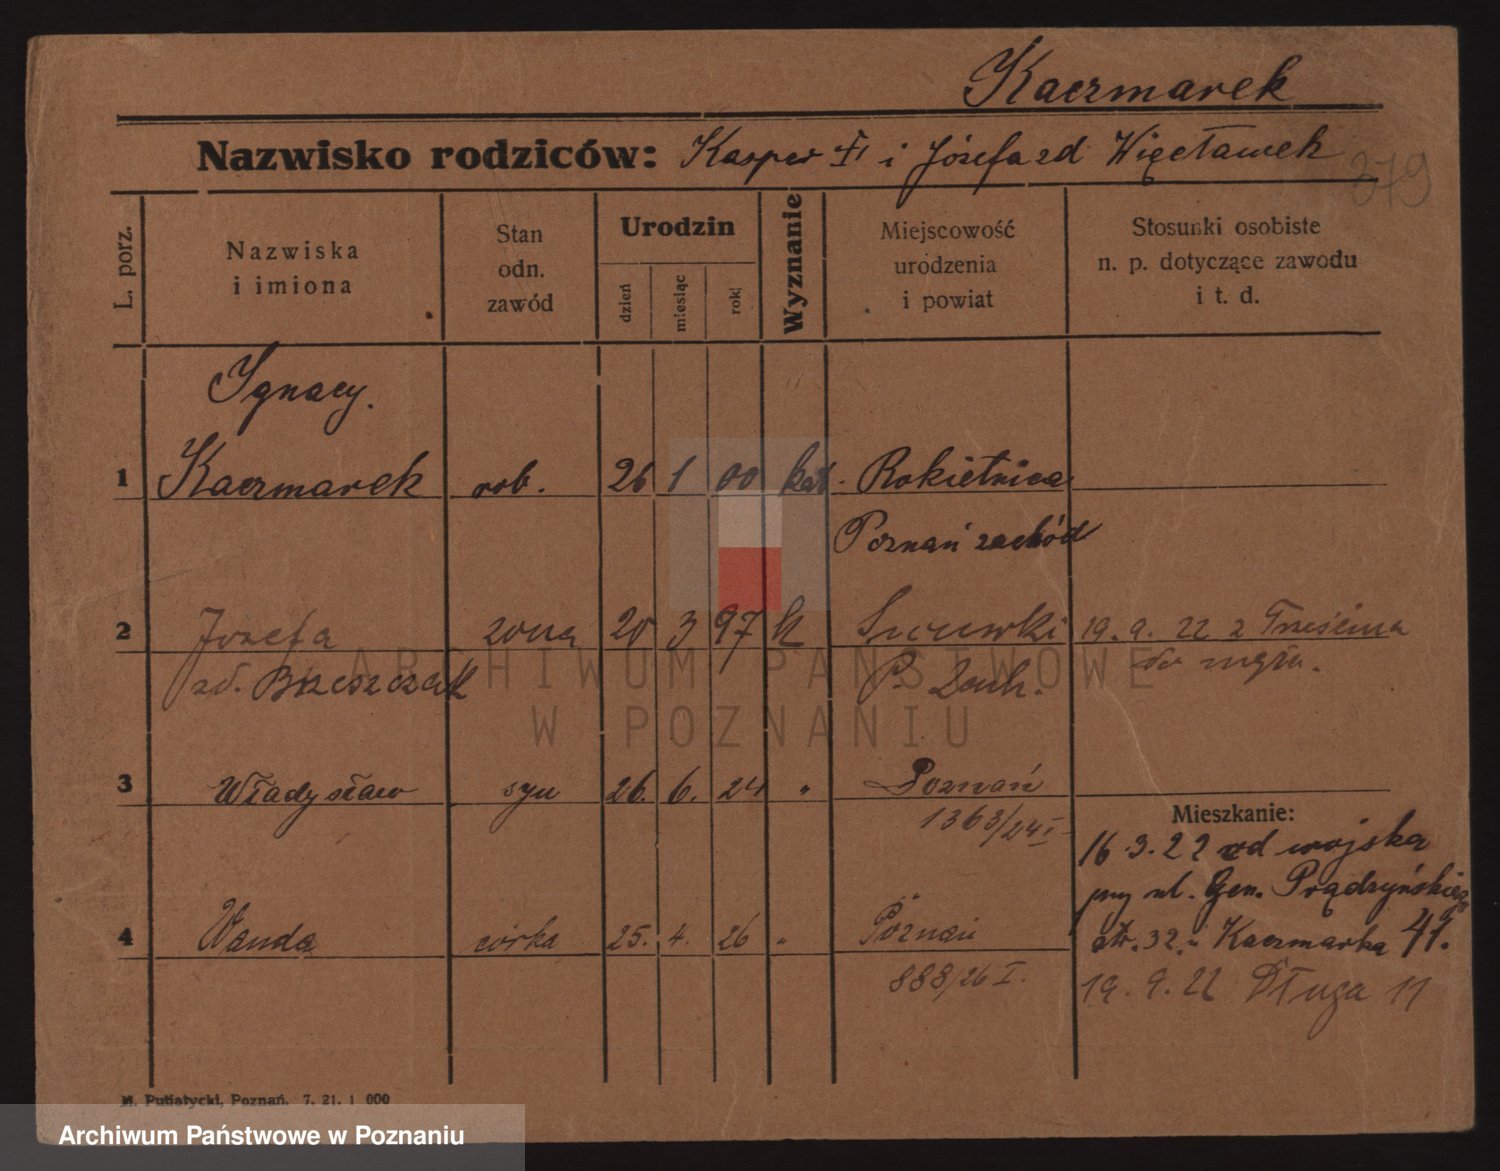 Kaczmarek
Nazwisko rodziców: Kasper i Józefa zd Więcławek
379
L. porz.
Nazwiska i imiona
Stan odn. zawód
Urodzin
dzień
miesiąc
rok
Wyznanie
Miejscowość urodzenia i powiat
Stosunki osobiste n. p. dotyczące zawodu i t. d.
Ignacy.
1 Kaczmarek rob. 26 1 00 kat. Rokietnica
Poznań zachód
2 Józefa żona 20 3 97 k 19. 9. 22 z
zd. Brzeszczak P. Zach. do męża.
3 Władysław syn 26. 6. 24 " Poznań
1363/24 I
Mieszkanie:
16.3.22 od wojska
przy ul. Gen. Prądzyńskiego
4 Wanda córka 25. 4. 26 " Poznań
str. 32 u Kaczmarka 41.
888/26 I.
19. 9. 22 Długa 11
M. Putiatycki, Poznań. 7. 21. 1 000
ARCHIWUM PAŃSTWOWE
W POZNANIU
Archiwum Państwowe w Poznaniu